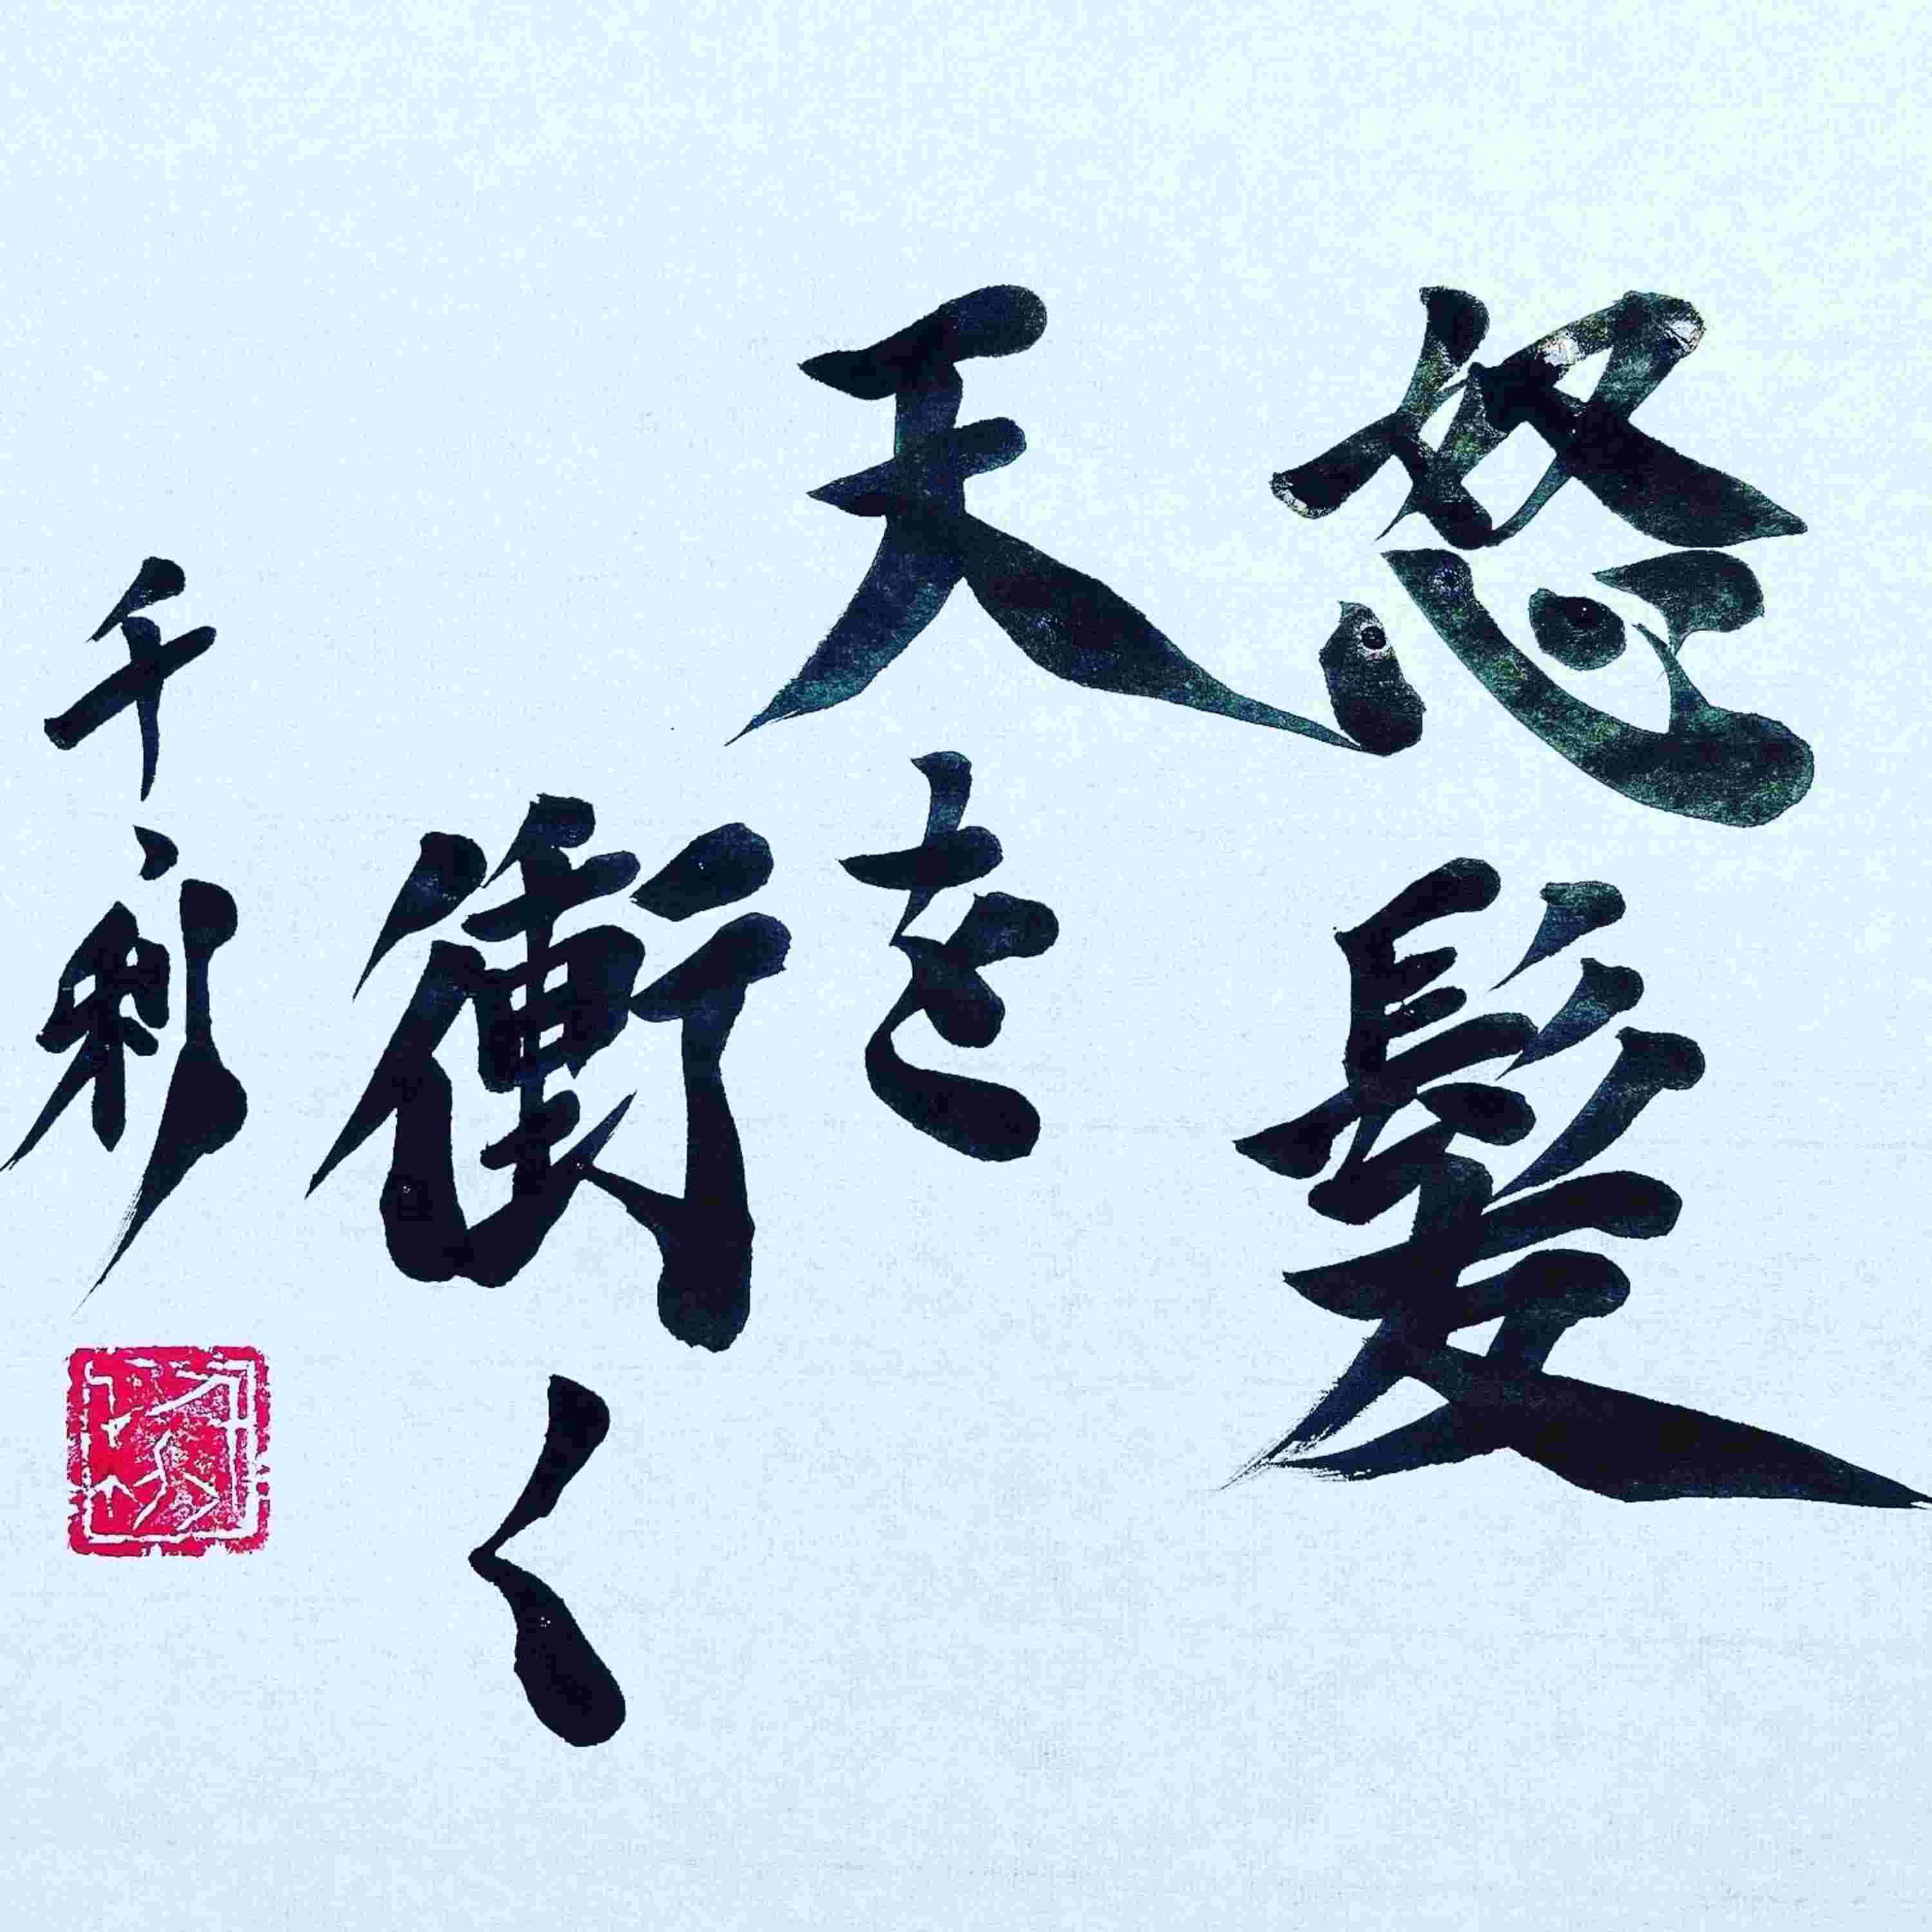 怒髪
天を
衝く
千